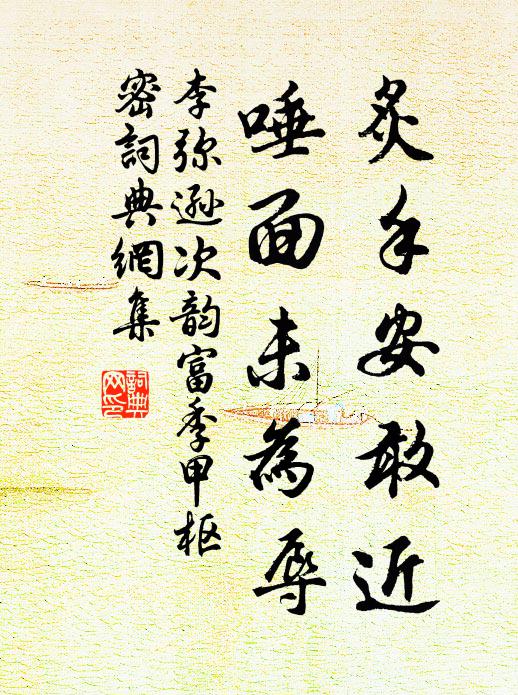 炙手安敢近
唾面未為辱
李弥遜次韵富季甲枢
密詞典網集
詞典
网印